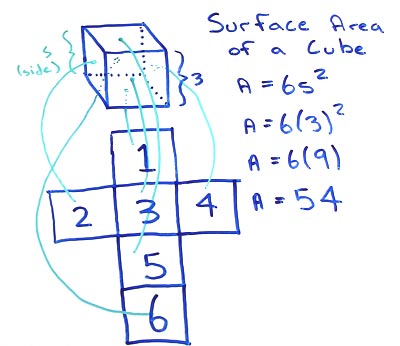 Surface Area
of a Cube
s
(side)
3
A = 6s²
A = 6(3)²
A = 6(9)
A = 54
1
2 3 4
5
6